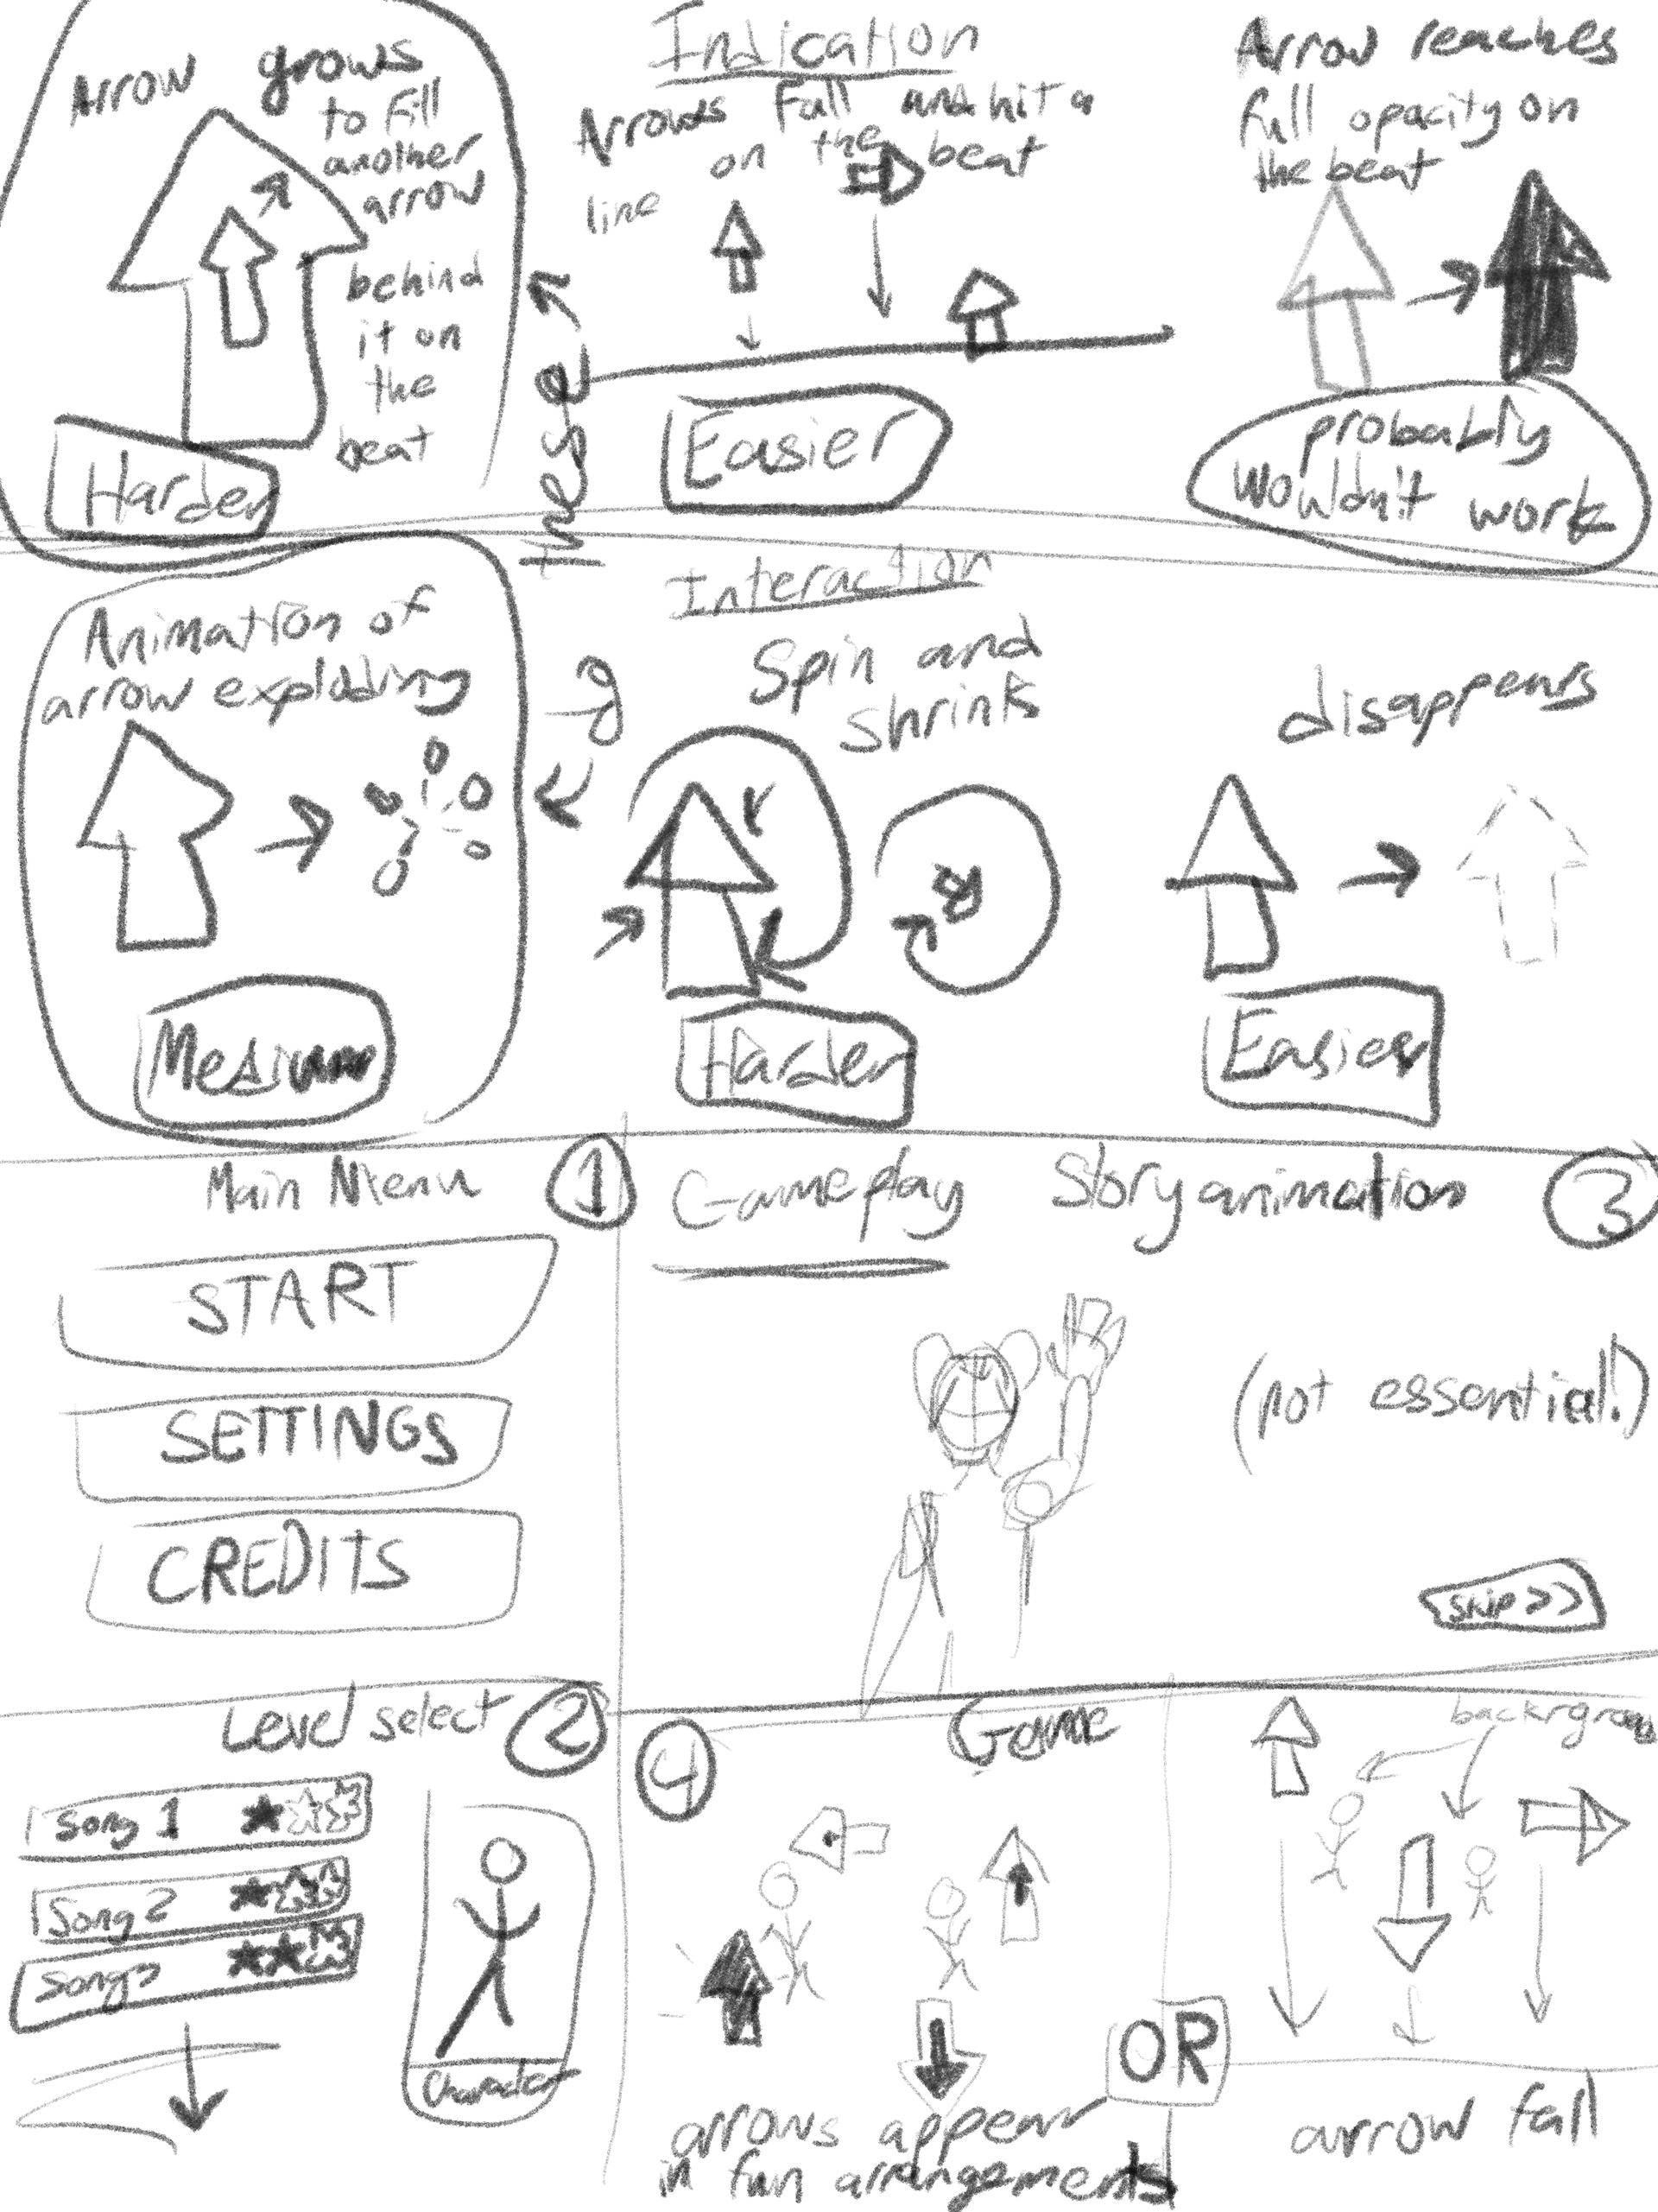 Indication
Arrow grows
to fill
another
arrow
behind
it on
the
beat
Harder
Arrows fall and hit a
line on the beat
Easier
Arrow reaches
full opacity on
the beat
probably
wouldn't work
these
Interaction
Animation of
arrow exploding
Medium
Spin and
shrink
Harder
disappears
Easier
Main Menu 1
START
SETTINGS
CREDITS
Gameplay
Story animation 3
(not essential!)
skip >>
Level select 2
Song 1
Song 2
Song 3
Character
4 Game
arrows appear
in fun arrangements
OR
arrow fall